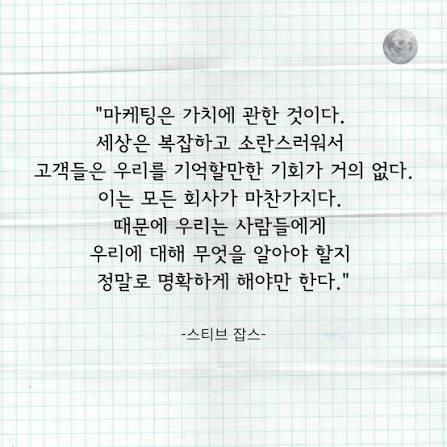 "마케팅은 가치에 관한 것이다.
세상은 복잡하고 소란스러워서
고객들은 우리를 기억할만한 기회가 거의 없다.
이는 모든 회사가 마찬가지다.
때문에 우리는 사람들에게
우리에 대해 무엇을 알아야 할지
정말로 명확하게 해야만 한다."
-스티브 잡스-